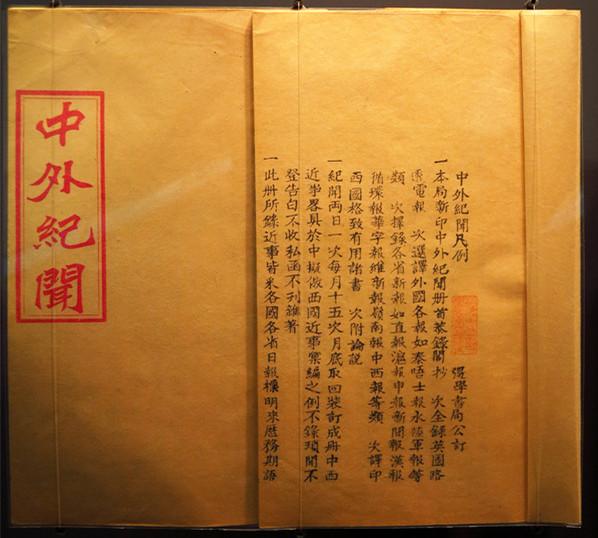 中外紀聞
中外紀聞凡例
彊學書局公訂
一本局新印中外紀聞冊首恭錄閣抄 次全錄英國路
透電報 次選譯外國各報如泰唔士報水陸軍報等
類 次擇錄各省新報如直報滬報申報新聞報漢報
循環報華字報維新報嶺南報中西報等類 次譯印
西國格致有用諸書 次附論說
一紀聞兩日一次每月十五次月底取回裝訂成冊中西
近事畧具於中擬倣西國近事彙編之例不錄瑣聞不
登告白不收私函不刊雜著
一此冊所錄近事皆采各國各省日報標明來歷務期語